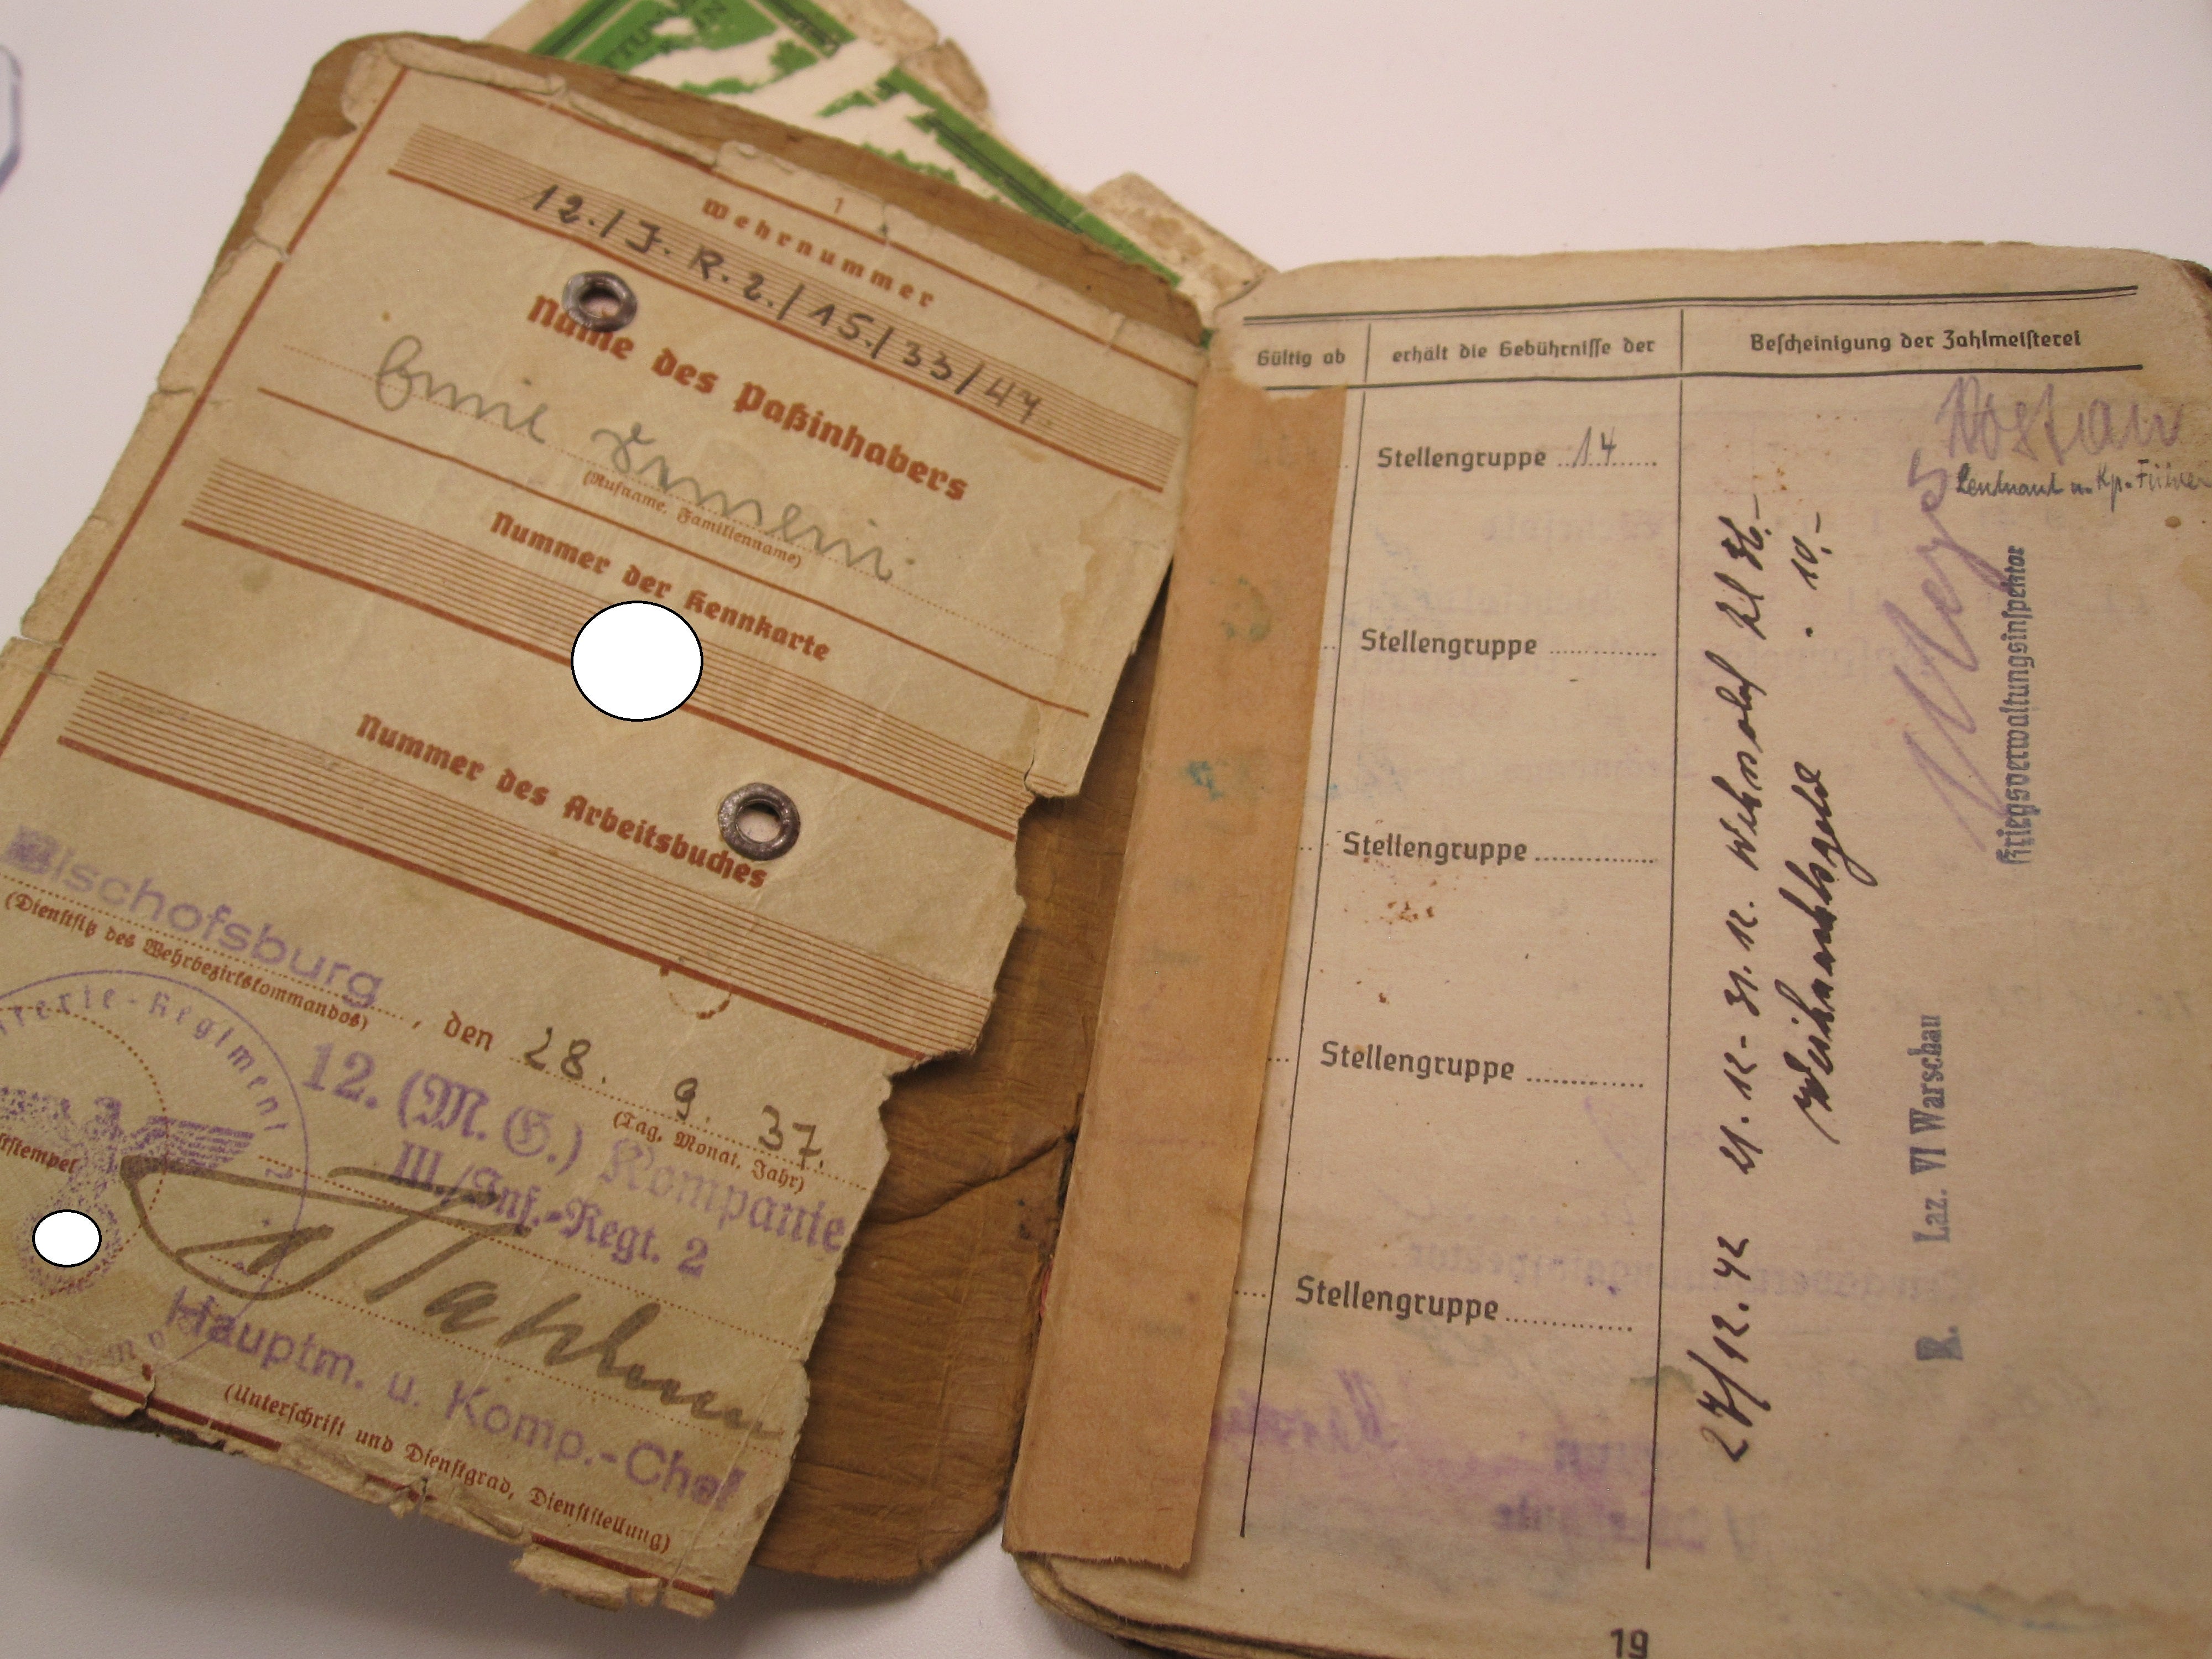 1
Wehrnummer
12./J.R.2./15./33/47.
Name des Paßinhabers
Emil
(Rufname, Familienname)
Nummer der Kennkarte
Nummer des Arbeitsbuches
Bischofsburg, den 28. 9. 37.
(Dienstsitz des Wehrbezirkskommandos)
(Tag, Monat, Jahr)
12. (M. G.) Kompanie
III./Inf.-Regt. 2
Regiment
Hauptm. u. Komp.-Chef
(Unterschrift und Dienstgrad, Dienststellung)
Gültig ab
erhält die Gebührnisse der
Bescheinigung der Zahlmeisterei
Stellengruppe 14
Leutnant u. Kp.-Führer
Stellengruppe
Stellengruppe
Stellengruppe
Stellengruppe
27/12.42 21.12-31.12. Wehrsold 36.-
Weihnachtsgeld 10.-
R. Laz. VI Warschau
Kriegsverwaltungsinspektor
19